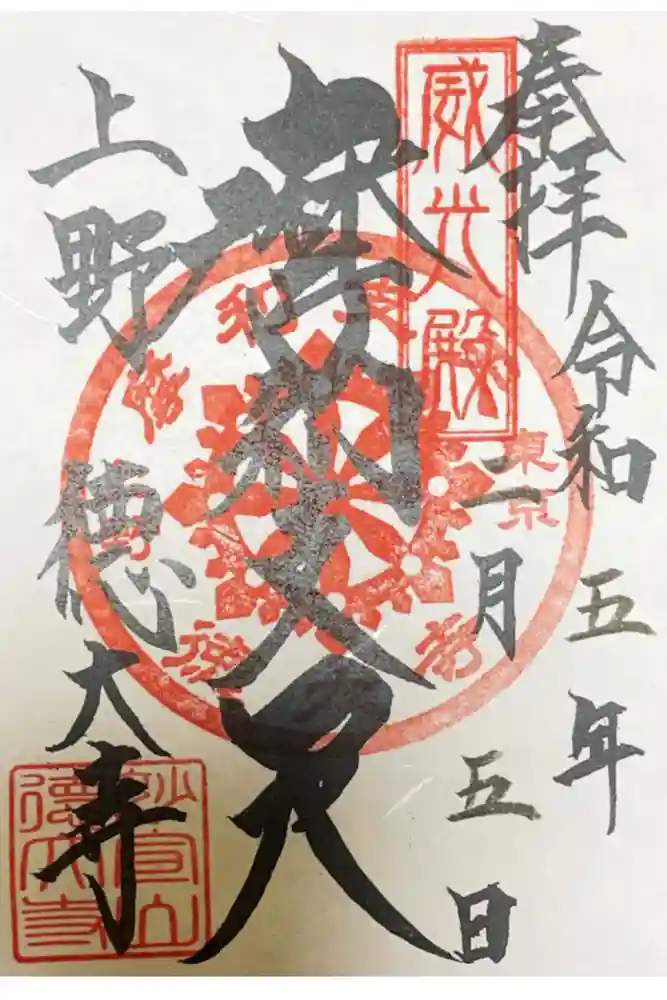 奉拝
令和五年
二月五日
威光殿
摩利支天
東京
上野
徳大寺
妙宣山
徳大寺